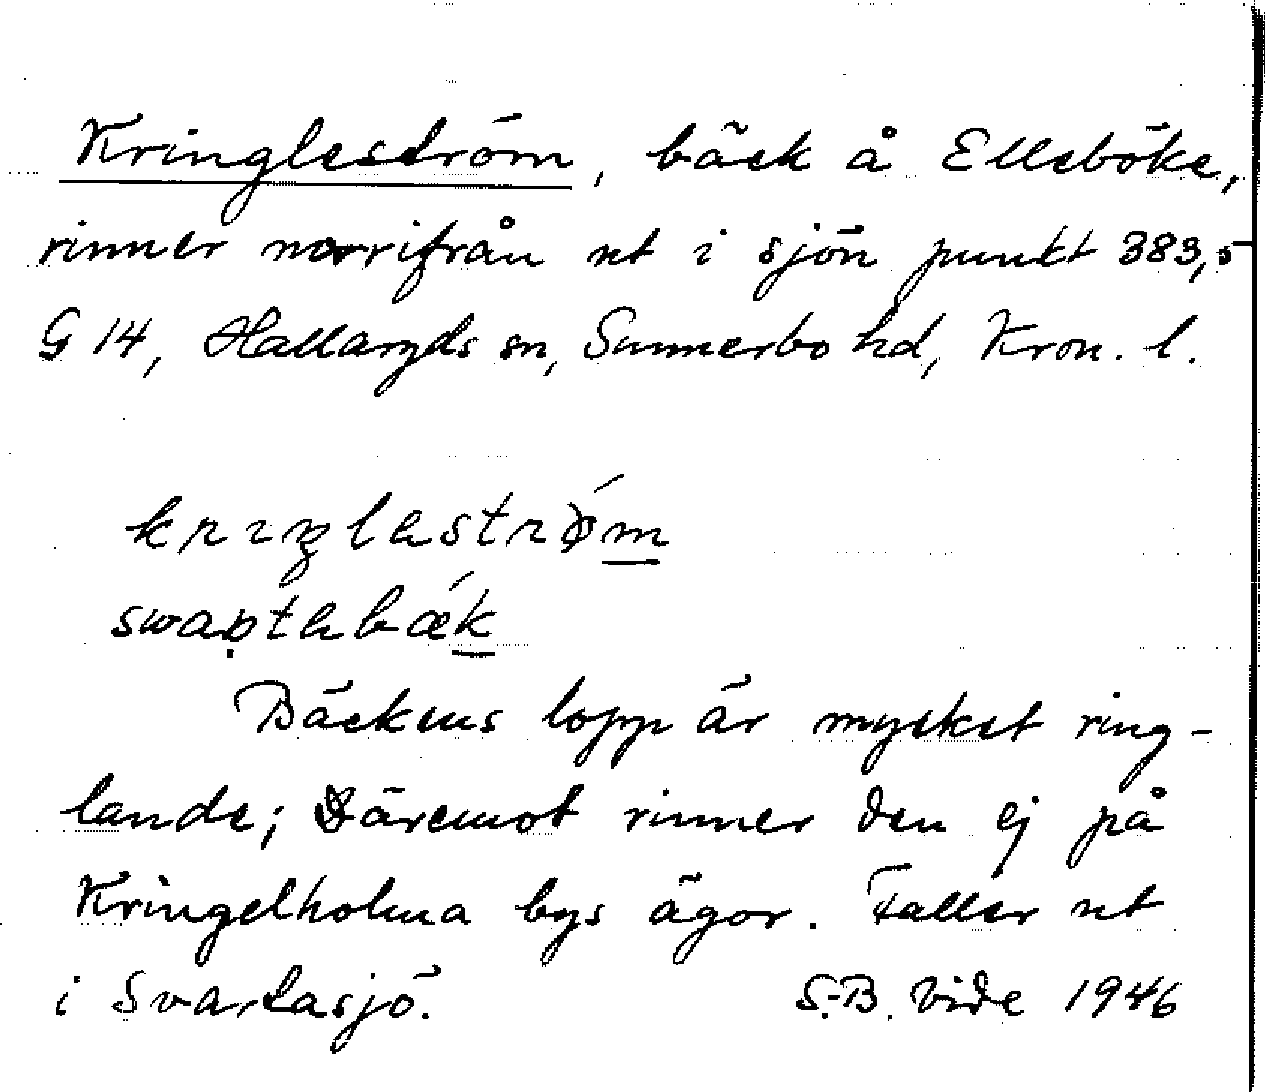 Kringleström, bäck å Elleböke,
rinner norrifrån ut i sjön punkt 383,5
G 14, Hallaryds sn, Sunnerbo hd, Kron. l.
krıŋlaström
swaptabæk
Bäckens lopp är mycket ring-
lande; Däremot rinner den ej på
Kringelholma bys ägor. Faller ut
i Svartasjö. S.-B. Vide 1946